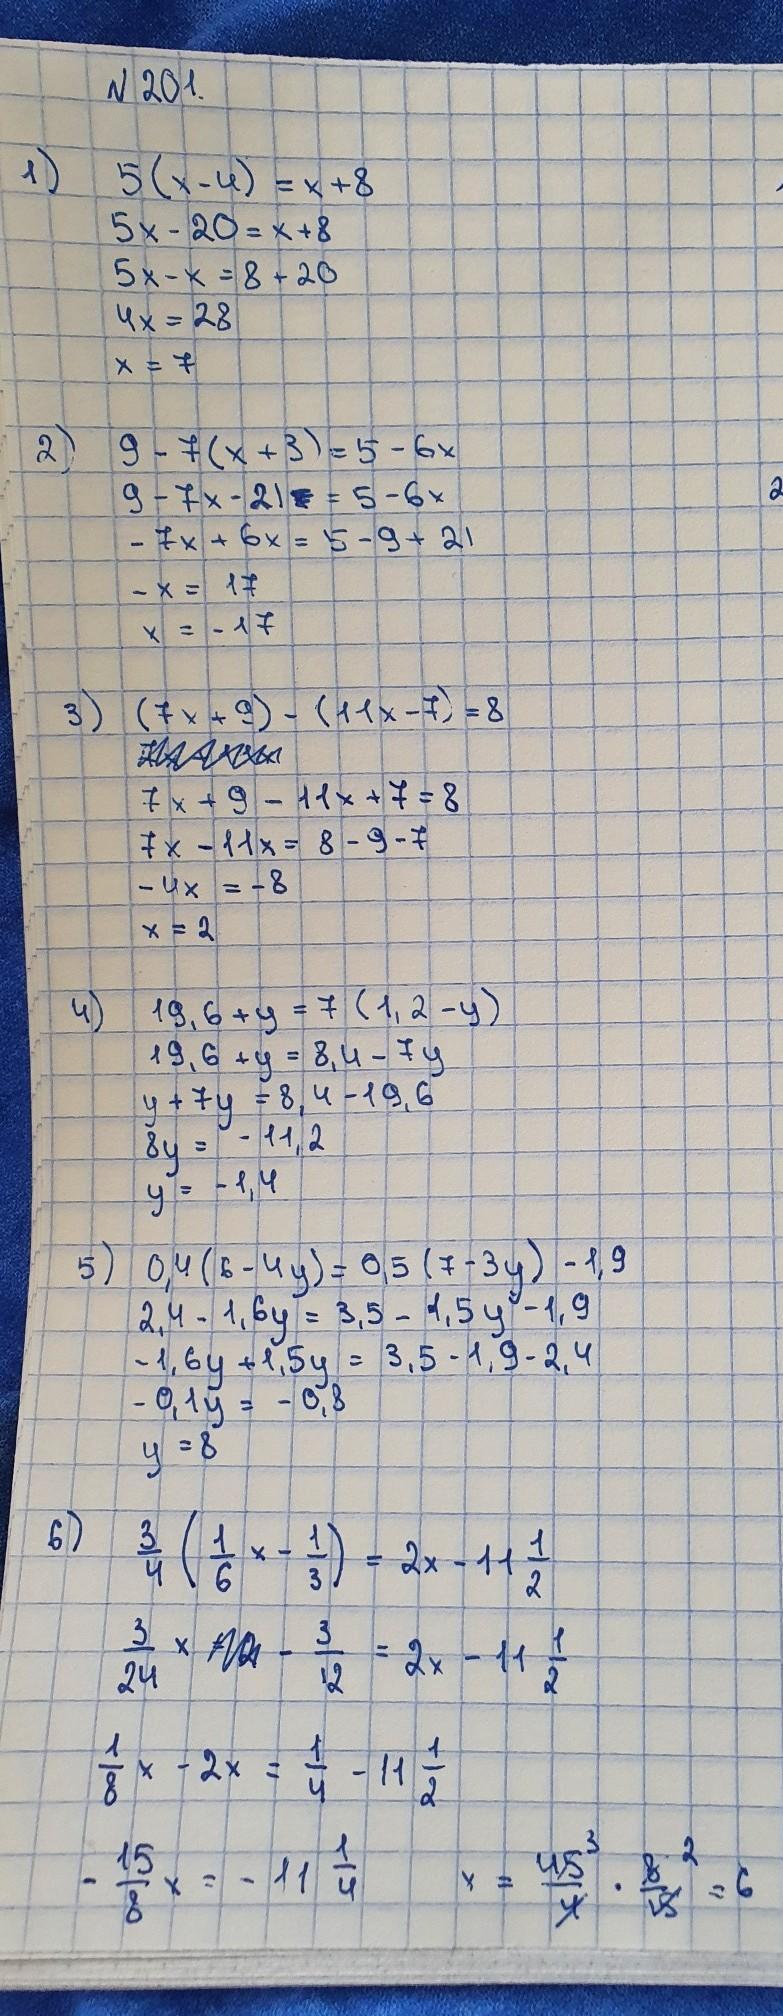 N 201.
1) 5(x-4) = x+8
5x-20 = x+8
5x-x = 8+20
4x = 28
x = 7
2) 9-7(x+3) = 5-6x
9-7x-21 = 5-6x
-7x+6x = 5-9+21
-x = 17
x = -17
3) (7x+9)-(11x-7) = 8
7x+9-11x+7 = 8
7x-11x = 8-9-7
-4x = -8
x = 2
4) 19,6+y = 7(1,2-y)
19,6+y = 8,4-7y
y+7y = 8,4-19,6
8y = -11,2
y = -1,4
5) 0,4(6-4y) = 0,5(7-3y)-1,9
2,4-1,6y = 3,5-1,5y-1,9
-1,6y+1,5y = 3,5-1,9-2,4
-0,1y = -0,8
y = 8
6) 3/4 (1/6 x - 1/3) = 2x - 11 1/2
3/24 x - 3/12 = 2x - 11 1/2
1/8 x - 2x = 1/4 - 11 1/2
-15/8 x = -11 1/4 x = 45 3/4 · 8 2/15 = 6